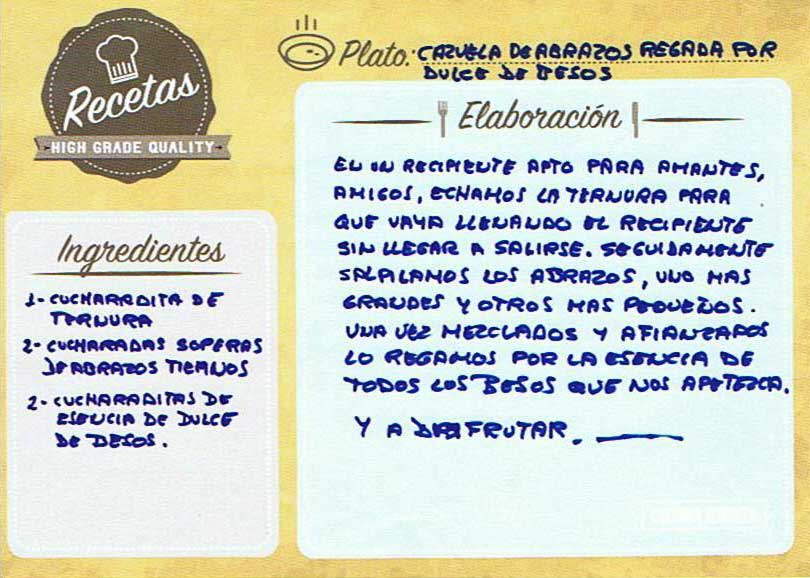 Recetas
HIGH GRADE QUALITY
Plato: CAZUELA DE ABRAZOS REGADA POR
DULCE DE BESOS
Ingredientes
1- CUCHARADITA DE
TERNURA
2- CUCHARADAS SOPERAS
DE ABRAZOS TIERNOS
2- CUCHARADITAS DE
ESENCIA DE DULCE
DE BESOS.
Elaboración
EN UN RECIPIENTE APTO PARA AMANTES,
AMIGOS, ECHAMOS LA TERNURA PARA
QUE VAYA LLENANDO EL RECIPIENTE
SIN LLEGAR A SALIRSE. SEGUIDAMENTE
SALPICAMOS LOS ABRAZOS, UNO MAS
GRANDES Y OTROS MAS PEQUEÑOS.
UNA VEZ MEZCLADOS Y AFIANZADOS
LO REGAMOS POR LA ESENCIA DE
TODOS LOS BESOS QUE NOS APETEZCA.
Y A DISFRUTAR.